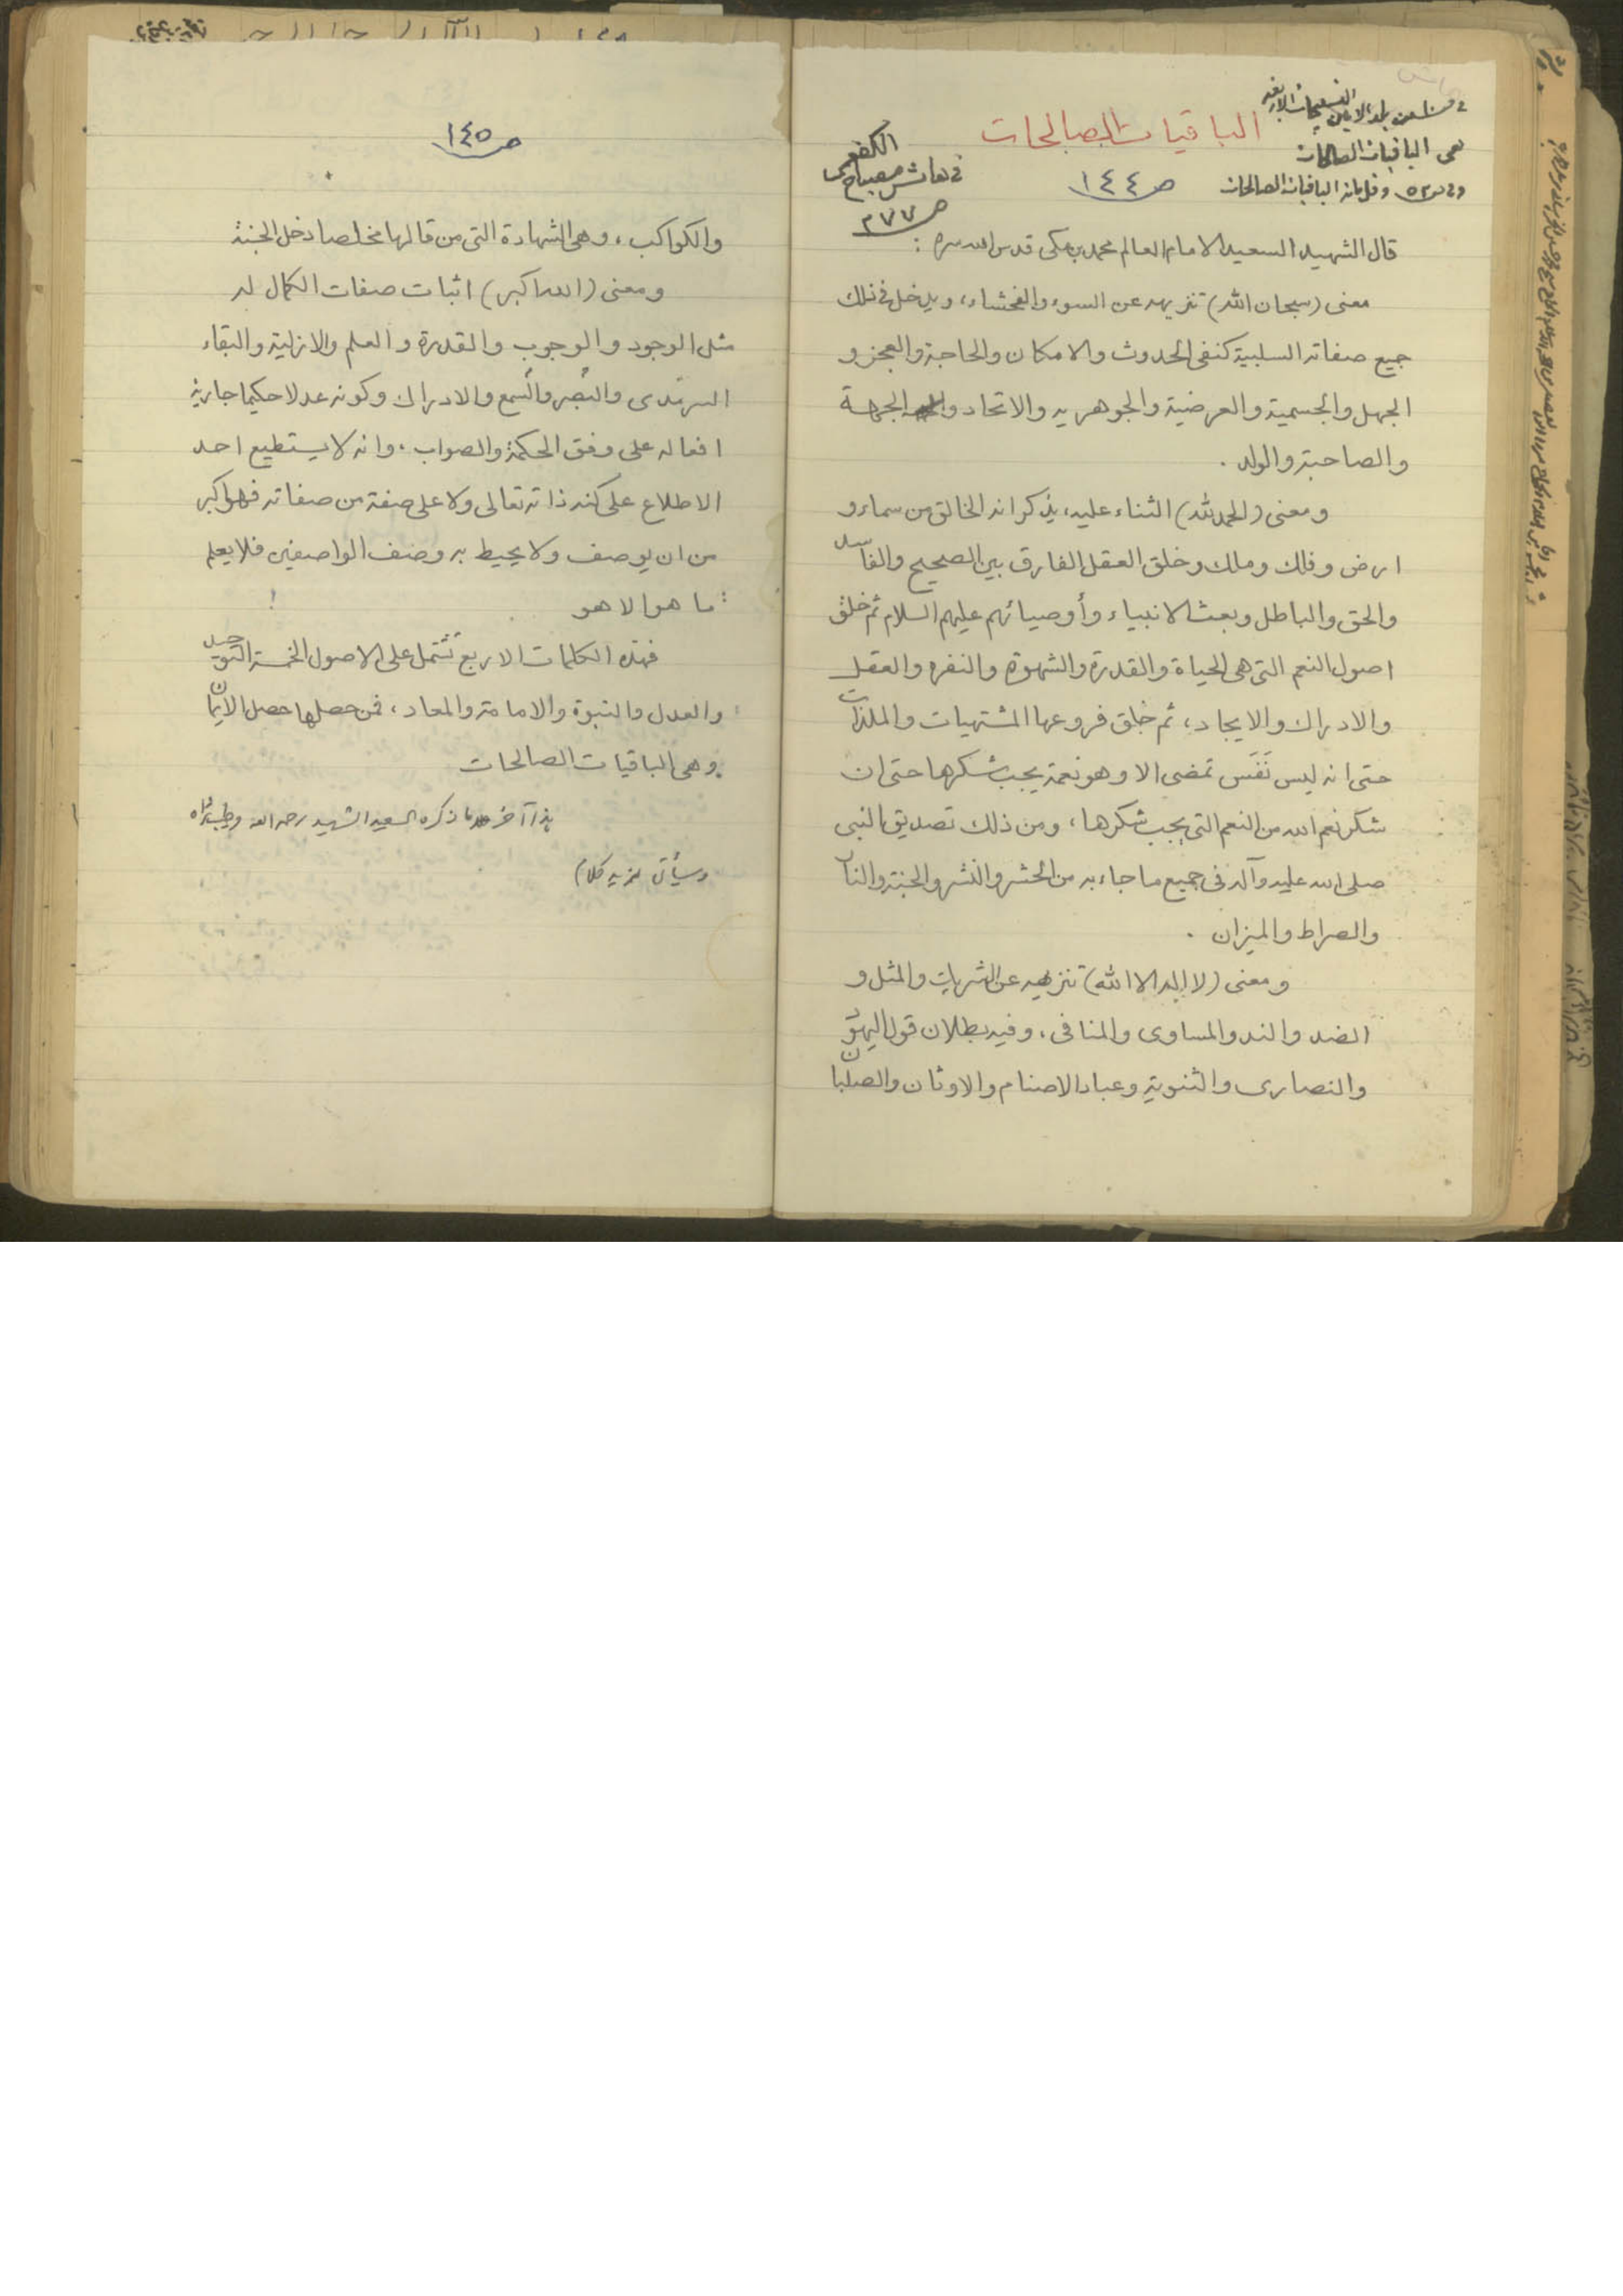 الباقيات الصالحات
التسبيحات الاربع
هى الباقيات الصالحات
الباقيات الصالحات
ص ١٤٤
الكفعمى
فى هامش مصباح
ص ٢٧٧
قال الشهيد السعيد الامام العالم محمد بن مكى قدس الله سره :
معنى (سبحان الله) تنزيهه عن السوء والفحشاء، ويدخل فى ذلك
جميع صفاته السلبية كنفى الحدوث والامكان والحاجة والعجز و
الجهل والجسمية والعرضية والجوهريه والاتحاد والجهة
والصاحبة والولد .
ومعنى (الحمد لله) الثناء عليه، يذكر انه الخالق من سماء و
ارض وفلك وملك وخلق العقل الفارق بين الصحيح والفاسد
والحق والباطل وبعث الانبياء وأوصيائهم عليهم السلام ثم خلق
اصول النعم التى هى الحياة والقدرة والشهوة والنفره والعقل
والادراك والايجاد، ثم خلق فروعها المشتهيات والملذات
حتى انه ليس نَفَس تمضى الا وهو نعمة يجب شكرها حتى ان
شكر نعم الله من النعم التى يجب شكرها، ومن ذلك تصديق النبى
صلى الله عليه وآله فى جميع ما جاء به من الحشر والنشر والجنة والنار
والصراط والميزان .
ومعنى (لا اله الا الله) تنزيهه عن الشريك والمثل و
الضد والند والمساوى والمنافى، وفيه بطلان قول اليهود
والنصارى والثنوية وعباد الاصنام والاوثان والصلبان
ص ١٤٥
والكواكب، وهى الشهادة التى من قالها مخلصا دخل الجنة
ومعنى (الله اكبر) اثبات صفات الكمال له
مثل الوجود والوجوب والقدرة والعلم والازلية والبقاء
السرمدى والبصر والسمع والادراك وكونه عدلا حكيما جارية
افعاله على وفق الحكمة والصواب، وانه لا يستطيع احد
الاطلاع على كنه ذاته تعالى ولا على صفة من صفاته فهو اكبر
من ان يوصف ولا يحيط به وصف الواصفين فلا يعلم
ما هو الا هو
فهذه الكلمات الاربع تشتمل على الاصول الخمسة التوحيد
والعدل والنبوة والامامة والمعاد، فمن حصلها حصل الايمان
وهى الباقيات الصالحات
هذا آخر ما ذكره السعيد الشهيد رحمه الله وطيب ثراه
وسيأتى مزيد كلام